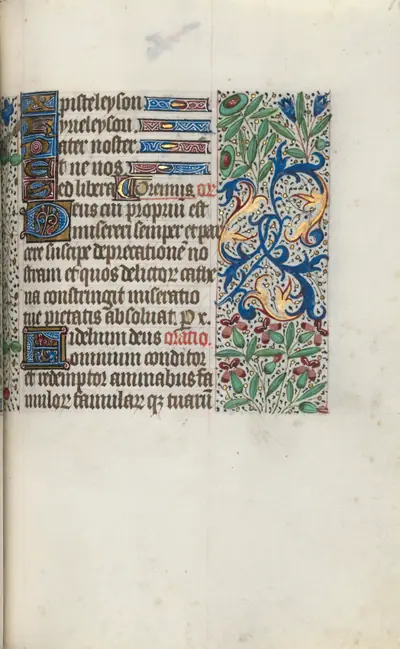 Xpisteleyson
Kyrieleyson
Pater noster
Et ne nos
Sed libera Oremus or
Deus cui propriū est
misereri semper et par
cere suscipe deprecationē no
stram et quos delictoꝝ cathe
na constringit miseratio
tue pietatis absoluat. P x.
Fidelium deus oratio.
omnium conditor
et redemptor animabus fa
mulorꝝ famularꝝ qꝫ tuarū